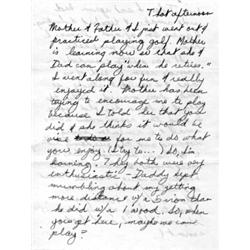 That afternoon
Mother & Father & I just went out &
practiced playing golf. Mother
is learning now so that she &
Dad can play when he retires."
I went along for fun & really
enjoyed it. Mother has been
trying to encourage me to play
because I told her that you
did & she thinks it would be
nice for me to do what
you enjoy. (I try to...) So, I'm
learning. They both were very
enthusiastic - Daddy kept
mumbling about my getting
more distance w/a 5 iron than
he did w/a 1 wood. So, when
you get here, maybe we can
play?